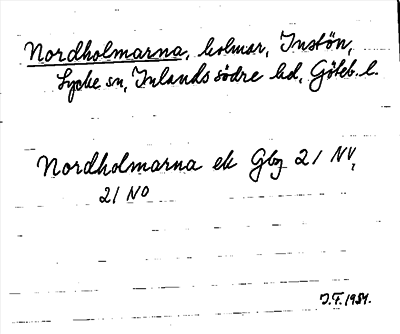 Nordholmarna, holmar, Instön,
Lycke sn, Inlands södre hd, Göteb. l.
Nordholmarna ek Gbg 21 NV,
21 NO
J.F. 1984.